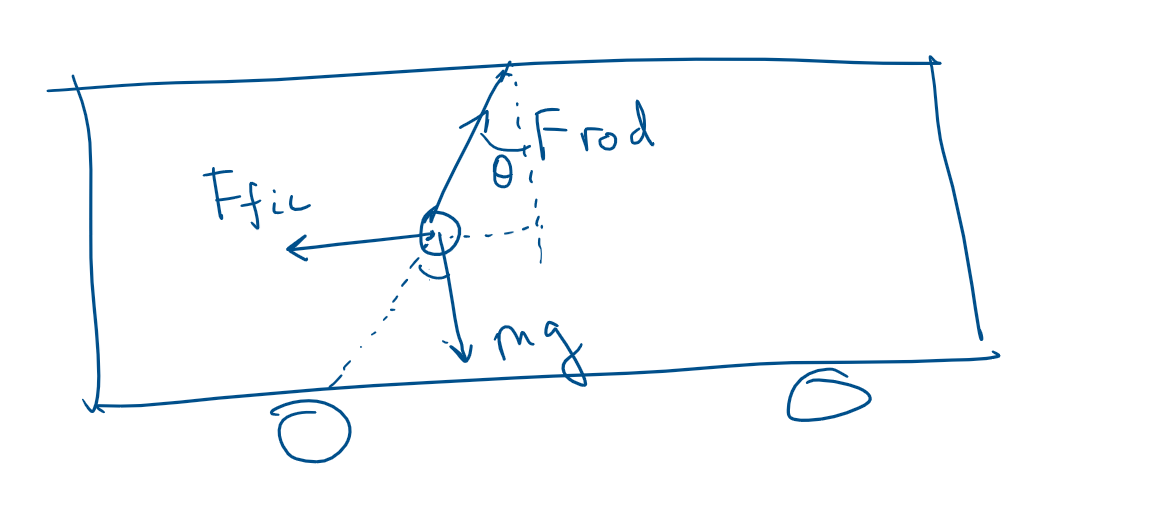 Frod
θ
Ffic
mg